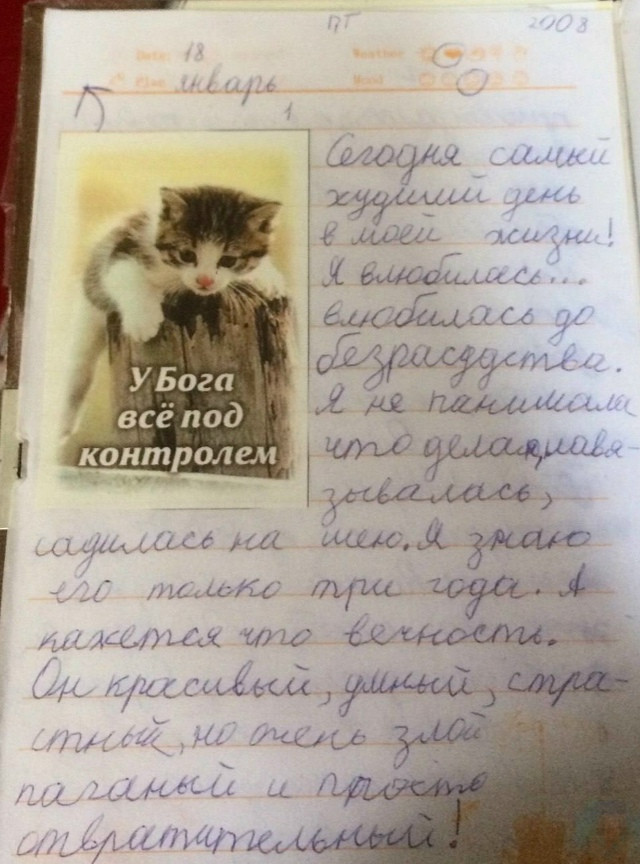 ПТ 2008
Date: 18 Weather
январь Mood
1
У Бога
всё под
контролем
Сегодня самый
худший день
в моей жизни!
Я влюбилась...
влюбилась до
безрасддства.
Я не панимала
что делаю, навя-
зывалась,
садилась на шею. Я знаю
его только три года. А
кажется что вечность.
Он красивый, умный, стра-
стный, но очень злой
паганый и просто
отвратительный!